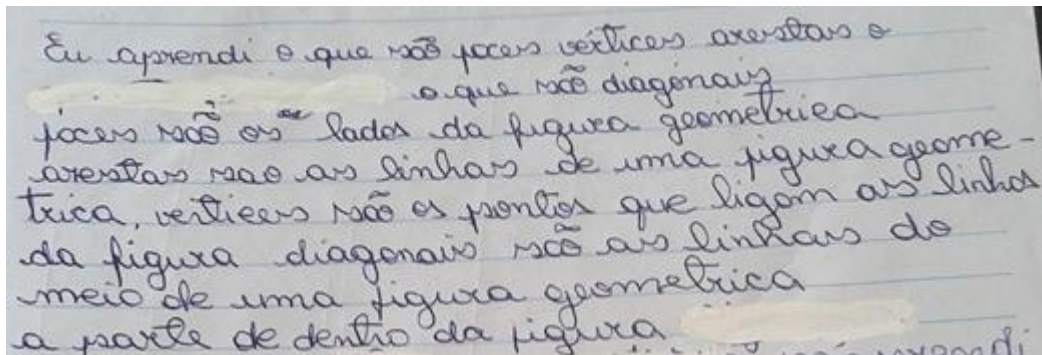 Eu aprendi o que são faces vértices arestas e
o que são diagonais
faces são os lados da figura geometrica
arestas sao as linhas de uma figura geome-
trica, vertices são os pontos que ligam as linhas
da figura diagonais são as linhas do
meio de uma figura geometrica
a parte de dentro da figura